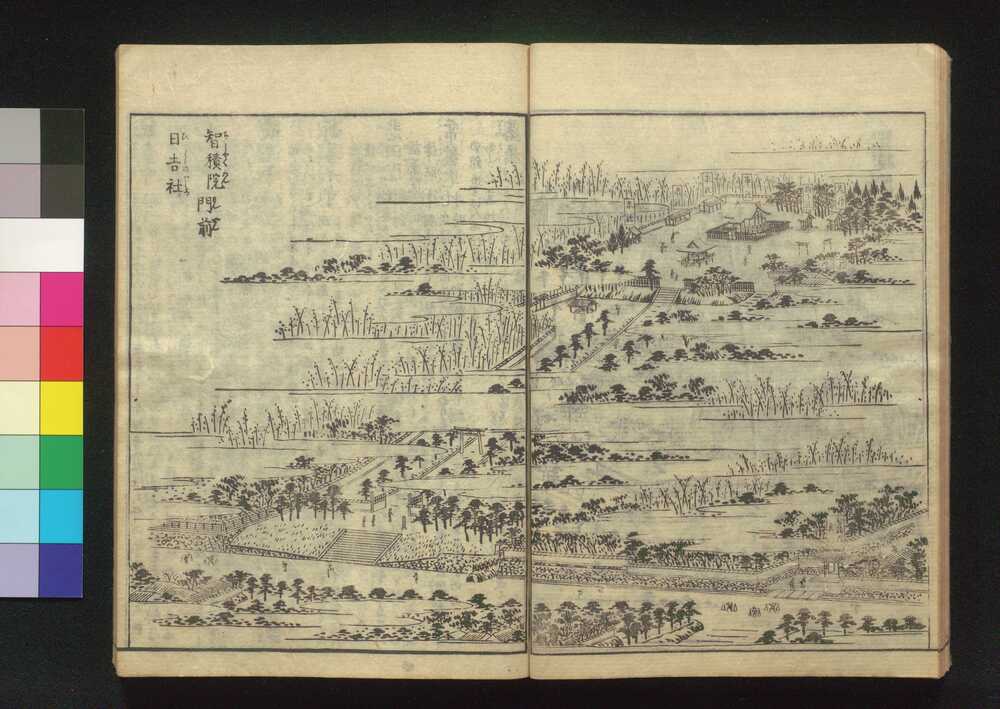 智積院門前
日吉社